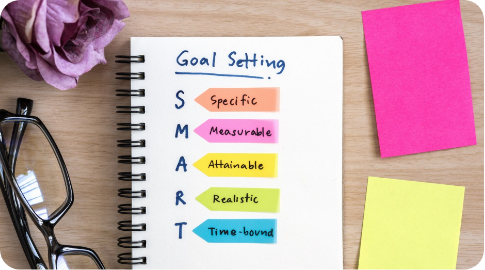 Goal Setting
S Specific
M Measurable
A Attainable
R Realistic
T Time-bound